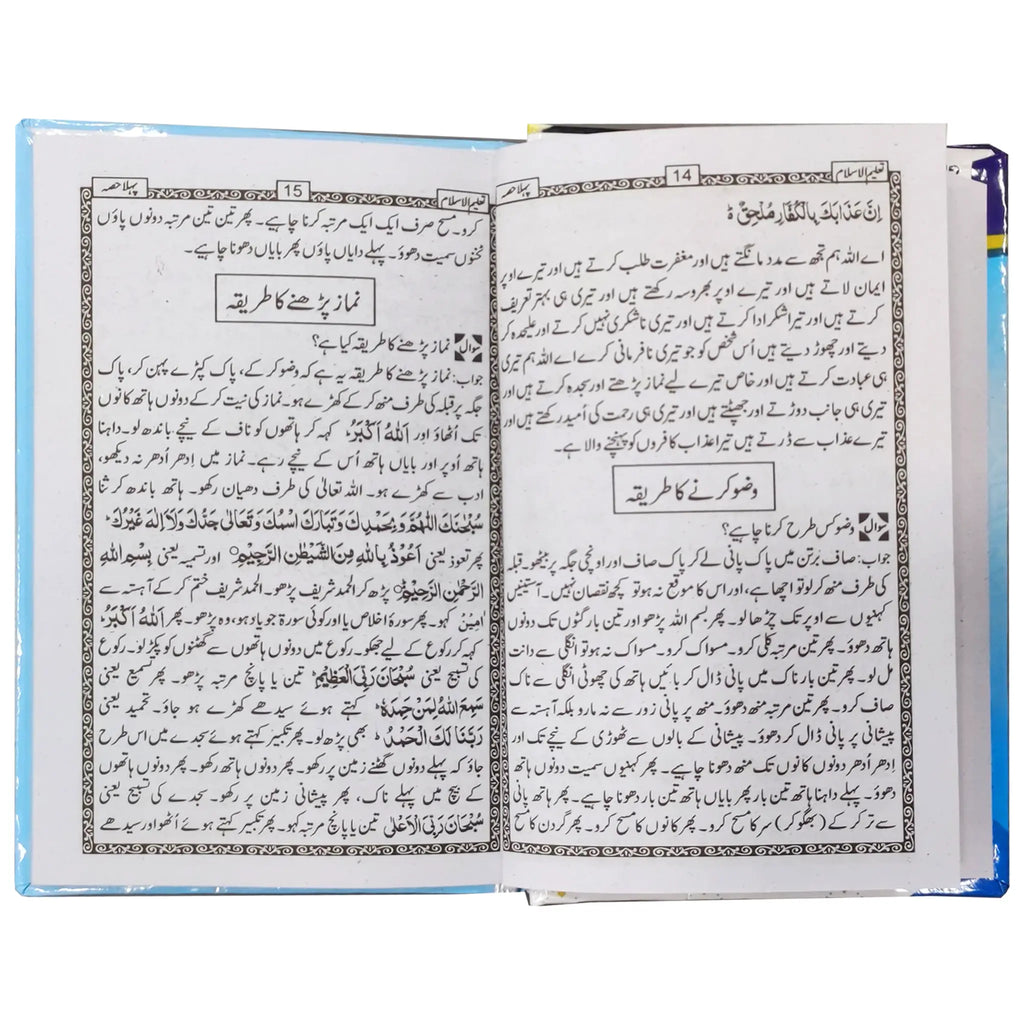 تعلیم الاسلام
14
پہلا حصہ
اِنَّ عَذَابَكَ بِالْكُفَّارِ مُلْحِقٌ ؕ
اے اللہ ہم تجھ سے مدد مانگتے ہیں اور مغفرت طلب کرتے ہیں اور تیرے اوپر
ایمان لاتے ہیں اور تیرے اوپر بھروسہ رکھتے ہیں اور تیری ہی بہتر تعریف
کرتے ہیں اور تیرا شکر ادا کرتے ہیں اور تیری ناشکری نہیں کرتے اور علیحدہ کر
دیتے اور چھوڑ دیتے ہیں اُس شخص کو جو تیری نافرمانی کرے اے اللہ ہم تیری
ہی عبادت کرتے ہیں اور خاص تیرے لیے نماز پڑھتے اور سجدہ کرتے ہیں اور
تیری ہی جانب دوڑتے اور جھپٹتے ہیں اور تیری ہی رحمت کی اُمید رکھتے ہیں اور
تیرے عذاب سے ڈرتے ہیں تیرا عذاب کافروں کو پہنچنے والا ہے۔
وضو کرنے کا طریقہ
سوال وضو کس طرح کرنا چاہیے؟
جواب: صاف برتن میں پاک پانی لے کر پاک صاف اور اونچی جگہ پر بیٹھو۔ قبلہ
کی طرف منھ کر لو تو اچھا ہے، اور اس کا موقع نہ ہو تو کچھ نقصان نہیں۔ آستینیں
کہنیوں سے اوپر تک چڑھا لو۔ پھر بسم اللہ پڑھو اور تین بار گٹوں تک دونوں
ہاتھ دھوؤ۔ پھر تین مرتبہ کلی کرو۔ مسواک کرو۔ مسواک نہ ہو تو انگلی سے دانت
مل لو۔ پھر تین بار ناک میں پانی ڈال کر بائیں ہاتھ کی چھوٹی انگلی سے ناک
صاف کرو۔ پھر تین مرتبہ منھ دھوؤ۔ منھ پر پانی زور سے نہ مارو بلکہ آہستہ سے
پیشانی پر پانی ڈال کر دھوؤ۔ پیشانی کے بالوں سے ٹھوڑی کے نیچے تک اور
اِدھر اُدھر دونوں کانوں تک منھ دھونا چاہیے۔ پھر کہنیوں سمیت دونوں ہاتھ
دھوؤ۔ پہلے داہنا ہاتھ تین بار پھر بایاں ہاتھ تین بار دھونا چاہیے۔ پھر ہاتھ پانی
سے تر کر کے (بھگو کر) سر کا مسح کرو۔ پھر کانوں کا مسح کرو۔ پھر گردن کا مسح
تعلیم الاسلام
15
پہلا حصہ
کرو۔ مسح صرف ایک ایک مرتبہ کرنا چاہیے۔ پھر تین تین مرتبہ دونوں پاؤں
ٹخنوں سمیت دھوؤ۔ پہلے دایاں پاؤں پھر بایاں دھونا چاہیے۔
نماز پڑھنے کا طریقہ
سوال نماز پڑھنے کا طریقہ کیا ہے؟
جواب: نماز پڑھنے کا طریقہ یہ ہے کہ وضو کر کے، پاک کپڑے پہن کر، پاک
جگہ پر قبلہ کی طرف منھ کر کے کھڑے ہو۔ نماز کی نیت کر کے دونوں ہاتھ کانوں
تک اُٹھاؤ اور اَللّٰهُ اَكْبَرُ کہہ کر ہاتھوں کو ناف کے نیچے باندھ لو۔ داہنا
ہاتھ اُوپر اور بایاں ہاتھ اُس کے نیچے رہے۔ نماز میں اِدھر اُدھر نہ دیکھو،
ادب سے کھڑے ہو۔ اللہ تعالیٰ کی طرف دھیان رکھو۔ ہاتھ باندھ کر ثنا
سُبْحٰنَكَ اللّٰهُمَّ وَبِحَمْدِكَ وَتَبَارَكَ اسْمُكَ وَتَعَالٰى جَدُّكَ وَلَآ اِلٰهَ غَيْرُكَ
پھر تعوذ یعنی اَعُوْذُ بِاللّٰهِ مِنَ الشَّيْطٰنِ الرَّجِيْمِ اور تسمیہ یعنی بِسْمِ اللّٰهِ
الرَّحْمٰنِ الرَّحِيْمِ پڑھ کر الحمد شریف پڑھو۔ الحمد شریف ختم کر کے آہستہ سے
اٰمِيْن کہو۔ پھر سورۃ اخلاص یا اور کوئی سورۃ جو یاد ہو، وہ پڑھو۔ پھر اَللّٰهُ اَكْبَرُ
کہہ کر رکوع کے لیے جھکو۔ رکوع میں دونوں ہاتھوں سے گھٹنوں کو پکڑ لو۔ رکوع
کی تسبیح یعنی سُبْحَانَ رَبِّيَ الْعَظِيْمِ تین یا پانچ مرتبہ پڑھو۔ پھر تسمیع یعنی
سَمِعَ اللّٰهُ لِمَنْ حَمِدَهٗ کہتے ہوئے سیدھے کھڑے ہو جاؤ۔ تحمید یعنی
رَبَّنَا لَكَ الْحَمْدُ بھی پڑھ لو۔ پھر تکبیر کہتے ہوئے سجدے میں اس طرح
جاؤ کہ پہلے دونوں گھٹنے زمین پر رکھو۔ پھر دونوں ہاتھ رکھو۔ پھر دونوں ہاتھوں
کے بیچ میں پہلے ناک، پھر پیشانی زمین پر رکھو۔ سجدے کی تسبیح یعنی
سُبْحَانَ رَبِّيَ الْاَعْلٰى تین یا پانچ مرتبہ کہو۔ پھر تکبیر کہتے ہوئے اُٹھو اور سیدھے